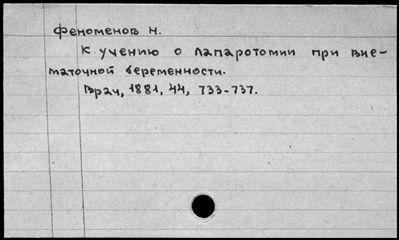 Феноменов Н.
К учению о лапаротомии при вне-
маточной беременности.
Врач, 1881, 44, 733-737.